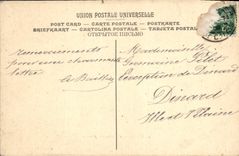 UNION POSTALE UNIVERSELLE
POST CARD — CARTE POSTALE — POSTKARTE
BRIEFKAART — CARTOLINA POSTALE — TARJETA POSTAL
ОТКРЫТОЕ ПИСЬМО
Remerciements
pour une charmante
lettre
Mademoiselle
Germaine
Réception de Dinard
Dinard
Ille et Vilaine